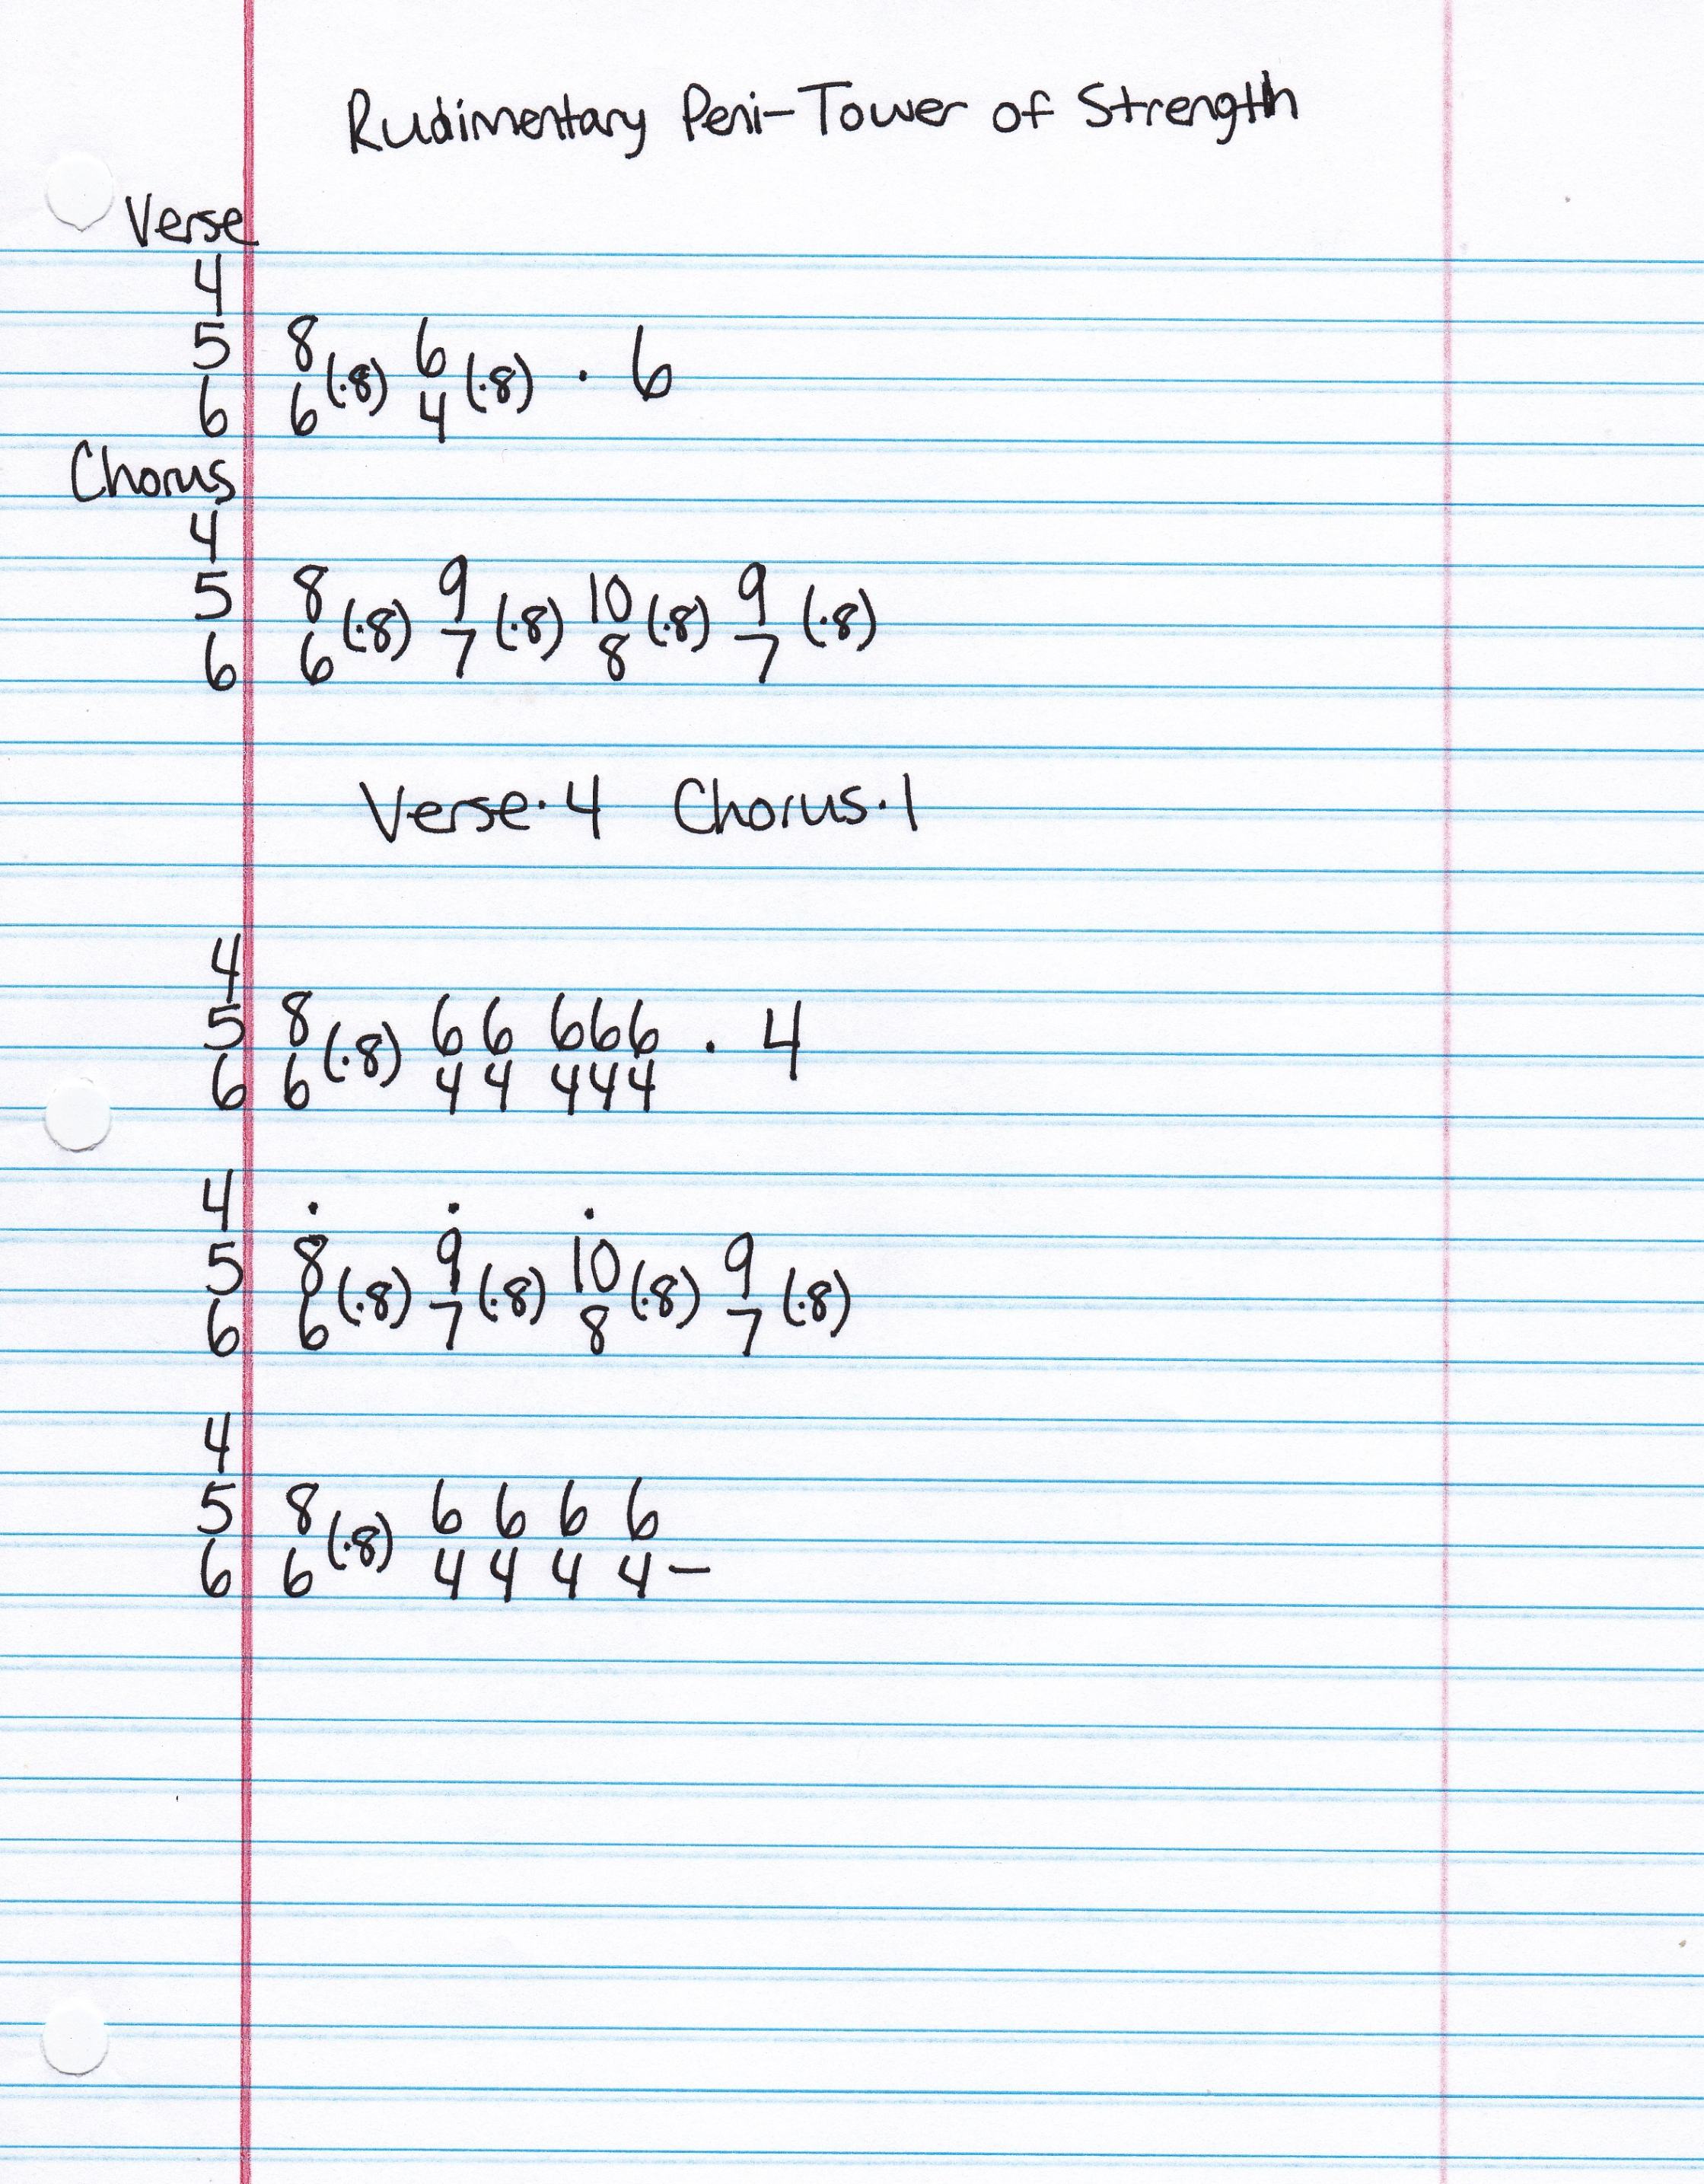 Rudimentary Peni-Tower of Strength
Verse
4
5 8 (·8) 6 (·8) · 6
6 6 4
Chorus
4
5 8 (·8) 9 (·8) 10 (·8) 9 (·8)
6 6 7 8 7
Verse·4 Chorus·1
4
5 8 (·8) 6 6 6 6 6 · 4
6 6 4 4 4 4 4
4 · · ·
5 8 (·8) 9 (·8) 10 (·8) 9 (·8)
6 6 7 8 7
4
5 8 (·8) 6 6 6 6
6 6 4 4 4 4 –